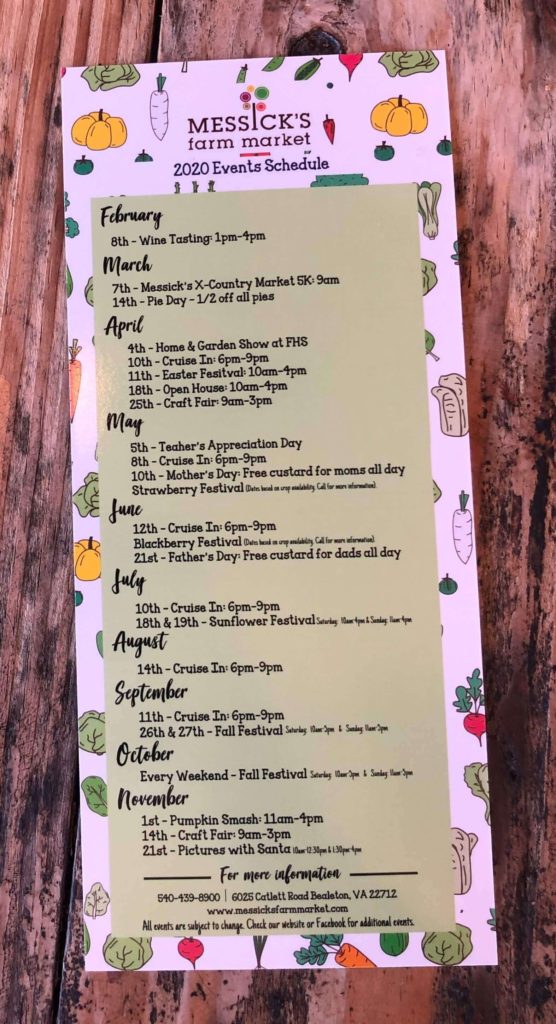 MESSICK'S
farm market
2020 Events Schedule
February
8th - Wine Tasting: 1pm-4pm
March
7th - Messick's X-Country Market 5K: 9am
14th - Pie Day - 1/2 off all pies
April
4th - Home & Garden Show at FHS
10th - Cruise In: 6pm-9pm
11th - Easter Fesitval: 10am-4pm
18th - Open House: 10am-4pm
25th - Craft Fair: 9am-3pm
May
5th - Teaher's Appreciation Day
8th - Cruise In: 6pm-9pm
10th - Mother's Day: Free custard for moms all day
Strawberry Festival (Dates based on crop availability. Call for more information).
June
12th - Cruise In: 6pm-9pm
Blackberry Festival (Dates based on crop availability. Call for more information).
21st - Father's Day: Free custard for dads all day
July
10th - Cruise In: 6pm-9pm
18th & 19th - Sunflower Festival Saturday: 10am-4pm & Sunday: 11am-4pm
August
14th - Cruise In: 6pm-9pm
September
11th - Cruise In: 6pm-9pm
26th & 27th - Fall Festival Saturday: 10am-5pm & Sunday: 11am-5pm
October
Every Weekend - Fall Festival Saturday: 10am-5pm & Sunday: 11am-5pm
November
1st - Pumpkin Smash: 11am-4pm
14th - Craft Fair: 9am-3pm
21st - Pictures with Santa 10am-12:30pm & 1:30pm-4pm
For more information
540-439-8900 | 6025 Catlett Road Bealeton, VA 22712
www.messicksfarmmarket.com
All events are subject to change. Check our website or Facebook for additional events.